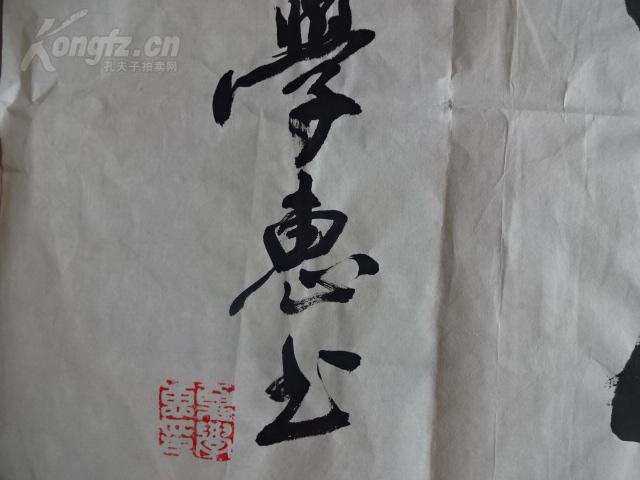 Kongfz.cn
孔夫子拍卖网
學惠书